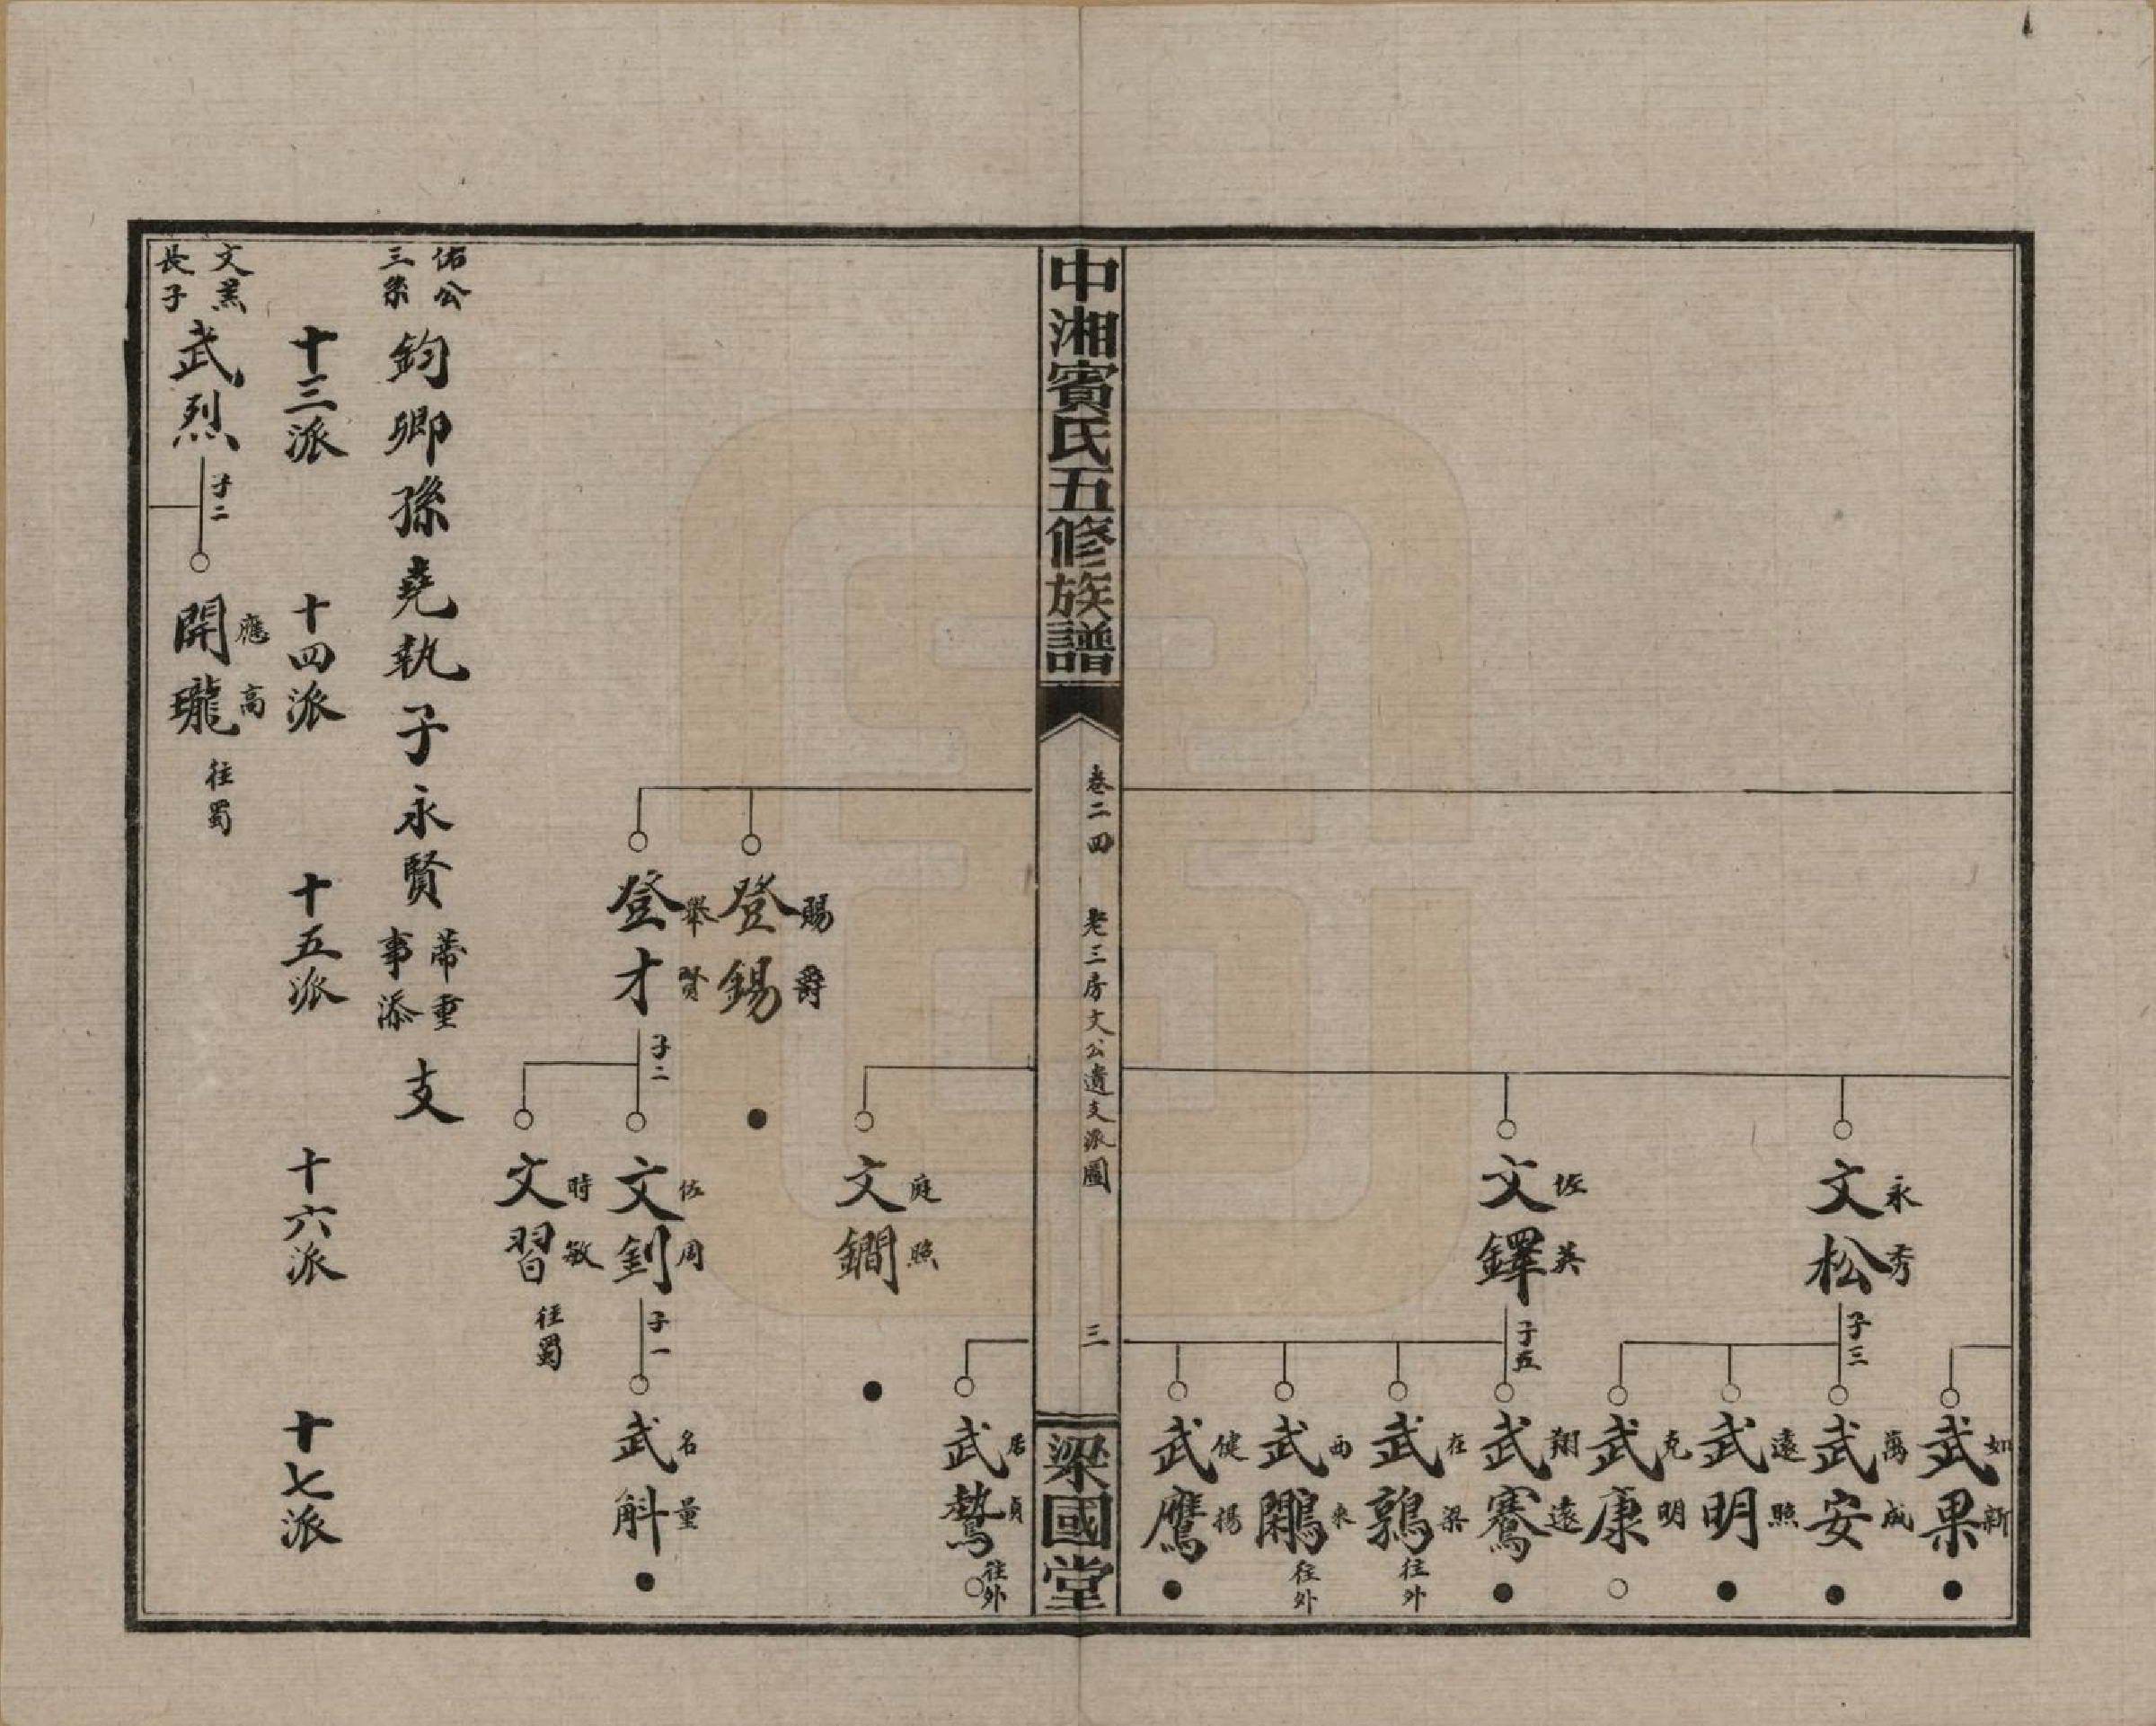 如新
武果
萬成
武安
遠照
武明
克明
武康
永秀
文松
子三
翔遠
武騫
在梁
武鶉
往外
西來
武鷳
往外
健揚
武鷹
佐英
文鐸
子五
中湘賓氏五修族譜
卷二四
老三房文公遺支派圖
三
梁國堂
居貞
武鷙
往外
庭照
文鐧
賜爵
登錫
舉賢
登才
子二
佐周
文釗
子一
名量
武斛
時敏
文習
往蜀
佑公
三系
鈞卿孫堯執子永賢
蒂重
事添
支
十三派
十四派
十五派
十六派
十七派
文
長子
武烈
子二
應高
開瓏
往蜀